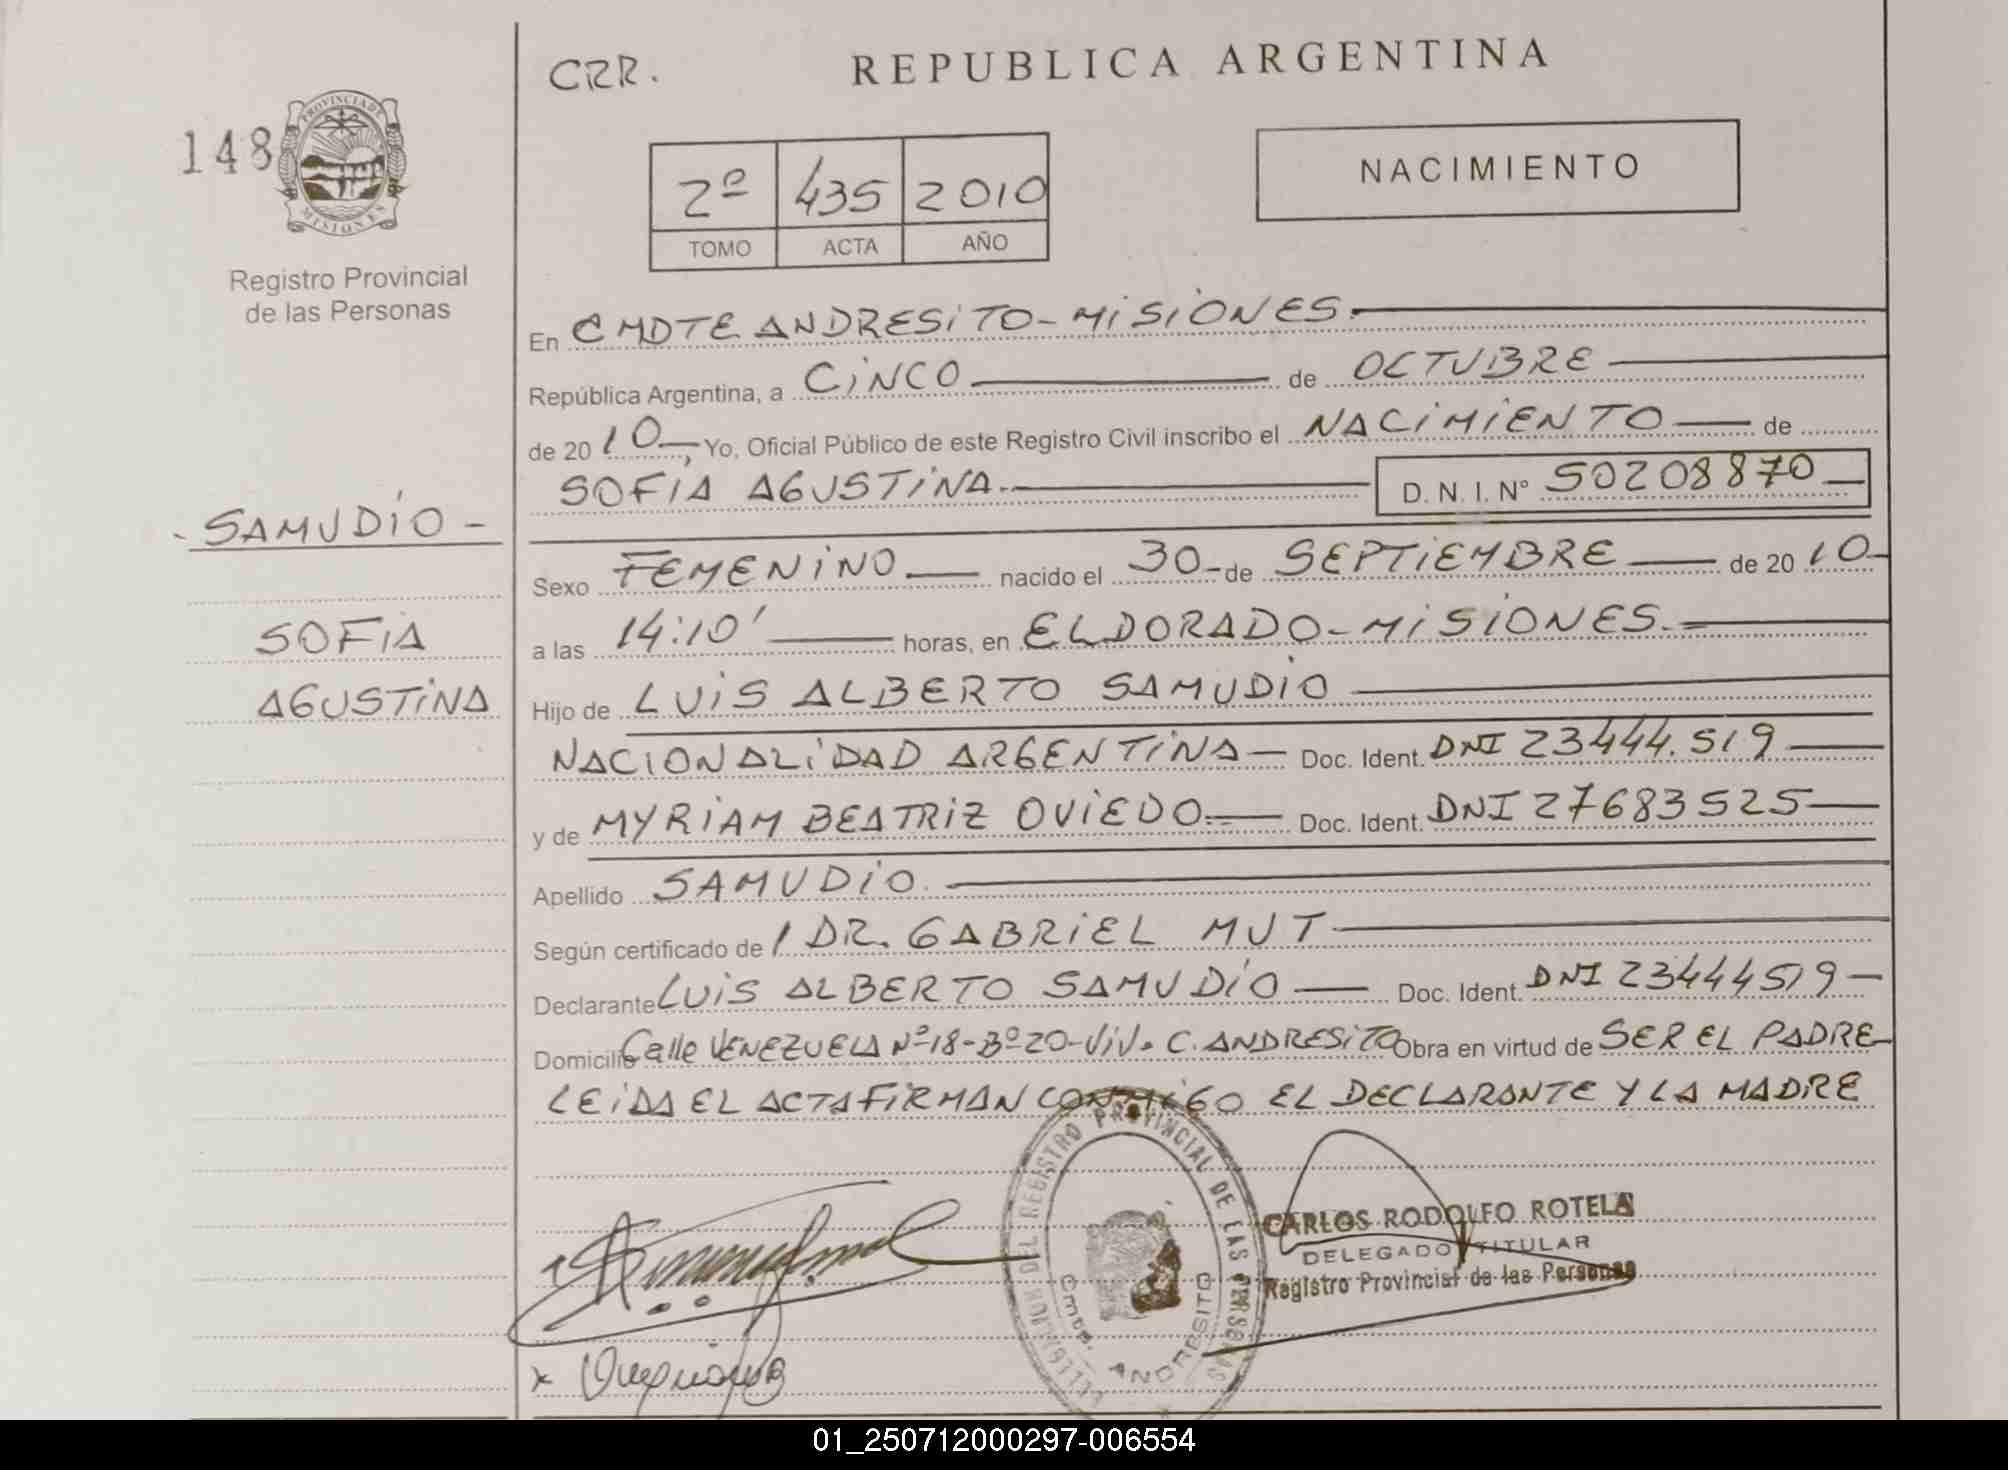 CRR.
REPUBLICA ARGENTINA
148
PROVINCIA DE
MISIONES
Registro Provincial
de las Personas
2º 435 2010
TOMO ACTA AÑO
NACIMIENTO
En CMDTE ANDRESITO - MISIONES.
República Argentina, a CINCO de OCTUBRE
de 20 10, Yo, Oficial Público de este Registro Civil inscribo el NACIMIENTO de
SOFIA AGUSTINA. D. N. I. Nº 50208870
- SAMUDIO -
SOFIA
AGUSTINA
Sexo FEMENINO nacido el 30 de SEPTIEMBRE de 20 10
a las 14:10' horas, en ELDORADO - MISIONES.
Hijo de LUIS ALBERTO SAMUDIO
NACIONALIDAD ARGENTINA Doc. Ident. DNI 23444.519
y de MYRIAM BEATRIZ OVIEDO Doc. Ident. DNI 27683525
Apellido SAMUDIO.
Según certificado de / DR. GABRIEL MUT
Declarante LUIS ALBERTO SAMUDIO Doc. Ident. DNI 23444519
Domicilio Calle VENEZUELA Nº 18 - Bº 20 - Viv. C. ANDRESITO Obra en virtud de SER EL PADRE
LEIDA EL ACTA FIRMAN CONMIGO EL DECLARANTE Y LA MADRE
DEL REGISTRO PROVINCIAL DE LAS PERSONAS
Cmdte. ANDRESITO
CARLOS RODOLFO ROTELA
DELEGADO TITULAR
Registro Provincial de las Personas
01_250712000297-006554